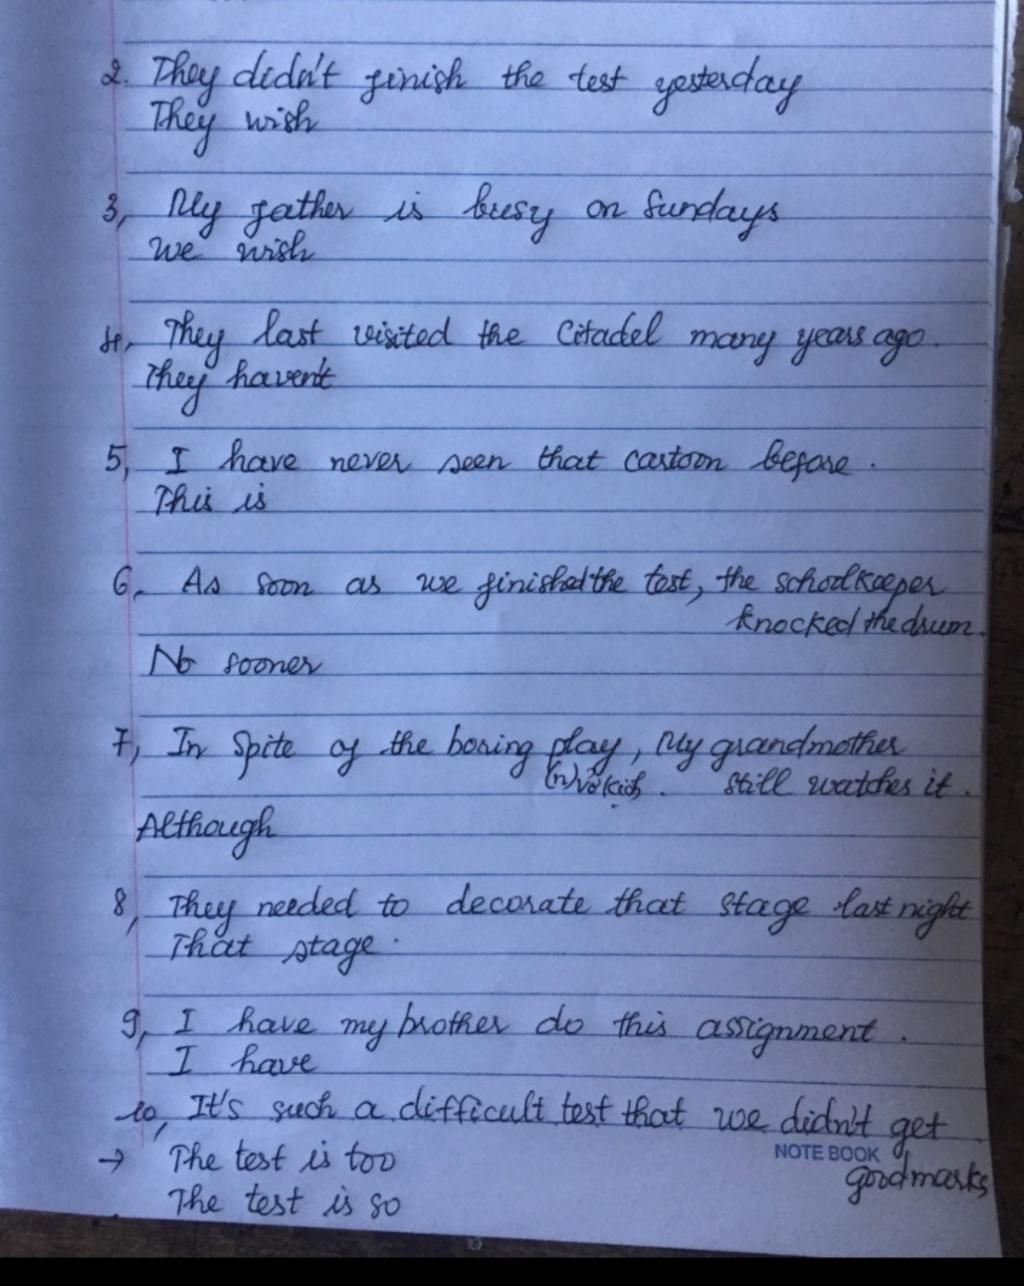 2. They didn't finish the test yesterday
They wish
3, My father is busy on Sundays
We wish
4, They last visited the Citadel many years ago.
They haven't
5, I have never seen that cartoon before.
This is
6. As soon as we finished the test, the schoolkeeper
knocked the drum.
No sooner
7, In spite of the boring play, My grandmother
(n) vở kịch. still watches it.
Although
8, They needed to decorate that stage last night
That stage.
9, I have my brother do this assignment.
I have
10, It's such a difficult test that we didn't get
NOTE BOOK
good marks
→ The test is too
The test is so